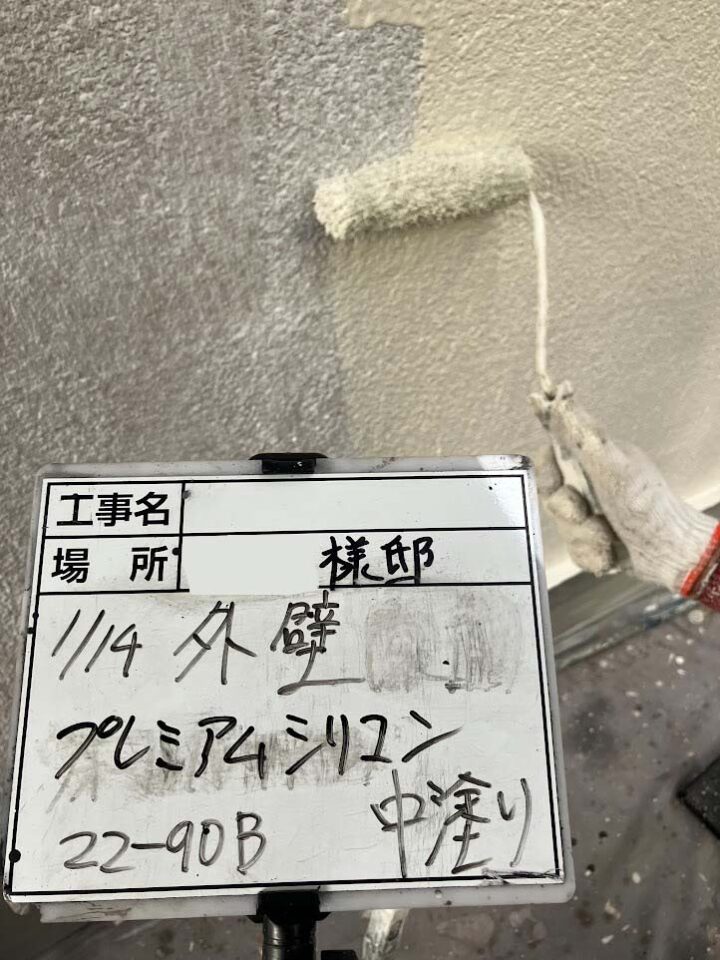 工事名
場所 様邸
1/14 外壁
プレミアムシリコン
中塗り
22-90B